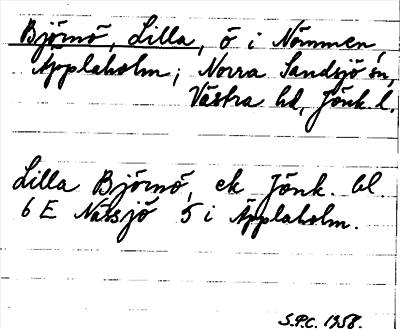 Björnö, Lilla, ö i Nömmen,
Äpplaholm; Norra Sandsjö sn,
Västra hd, Jönk. l.
Lilla Björnö, ek Jönk. bl
6 E Nässjö 5 i Äpplaholm.
S.P.C. 1958.